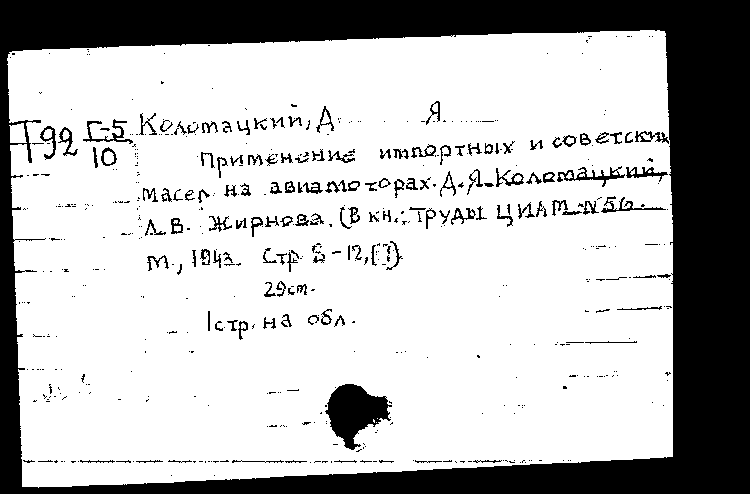 Т92 Г-5/10 Коломацкий, Д. Я.
Применение импортных и советских
масел на авиамоторах. Д.Я. Коломацкий,
Л.В. Жирнова. (В кн.: Труды ЦИАМ №56.
М., 1943. Стр 8-12, [1])
29см.
1 стр. на обл.